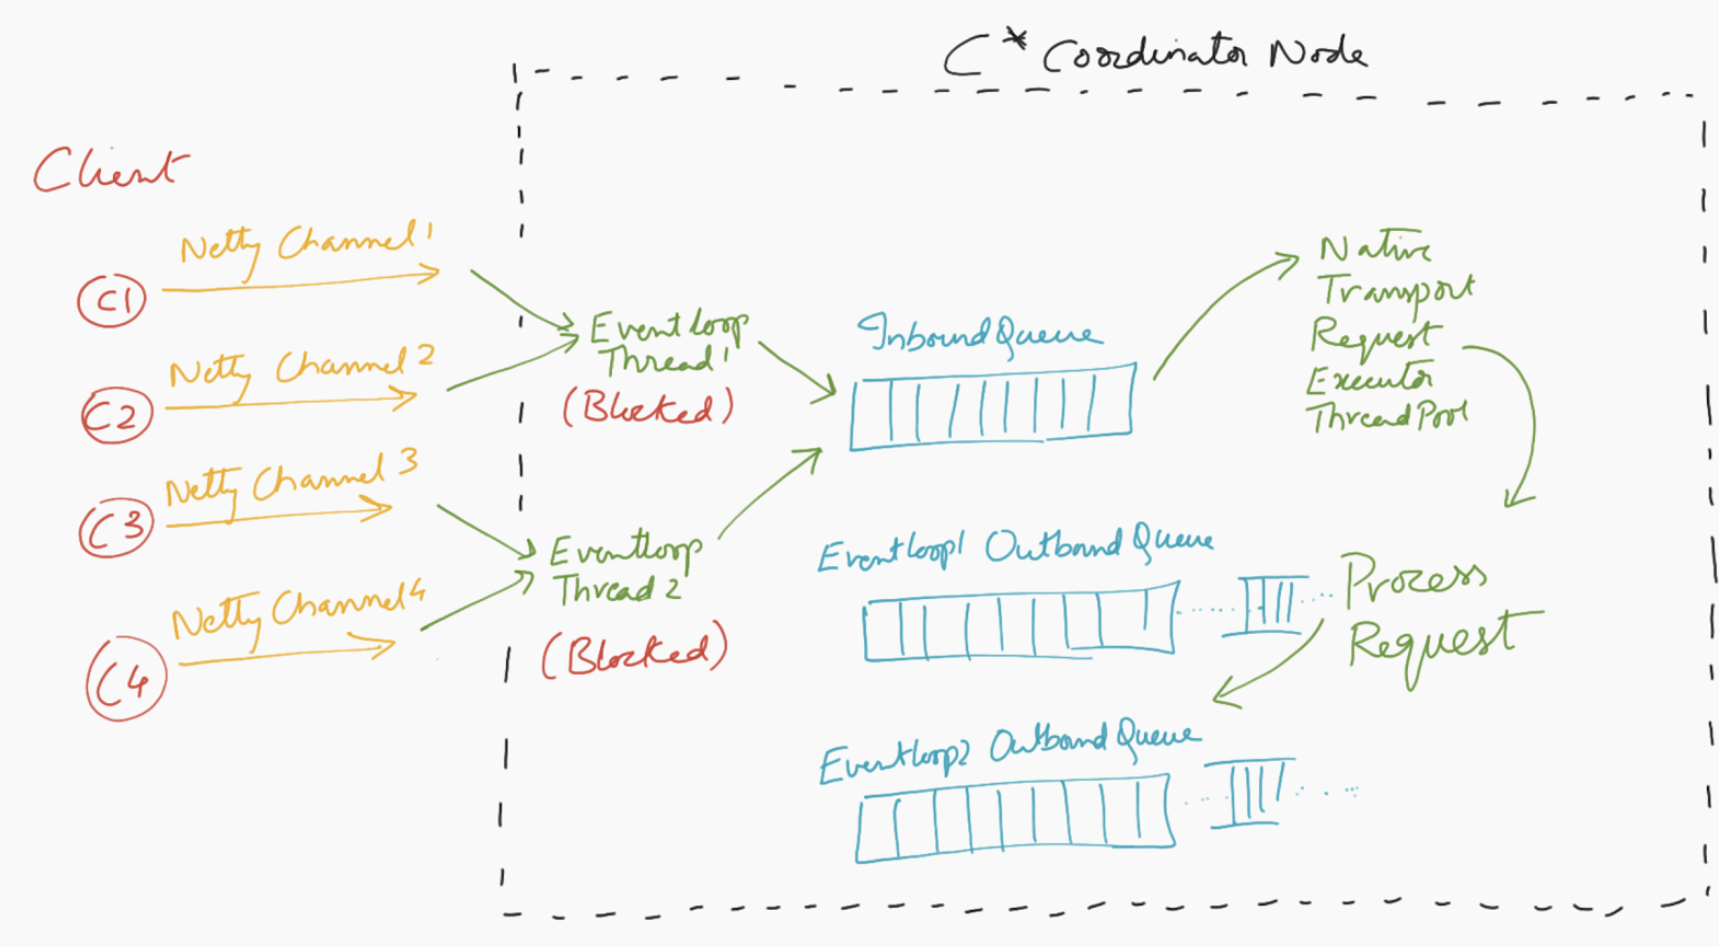 C* Coordinator Node
Client
Netty Channel 1
C1
Netty Channel 2
C2
Netty Channel 3
C3
Netty Channel 4
C4
Eventloop
Thread 1
(Blocked)
Eventloop
Thread 2
(Blocked)
Inbound Queue
Native
Transport
Request
Executor
ThreadPool
Eventloop1 Outbound Queue
Process
Request
Eventloop2 Outbound Queue